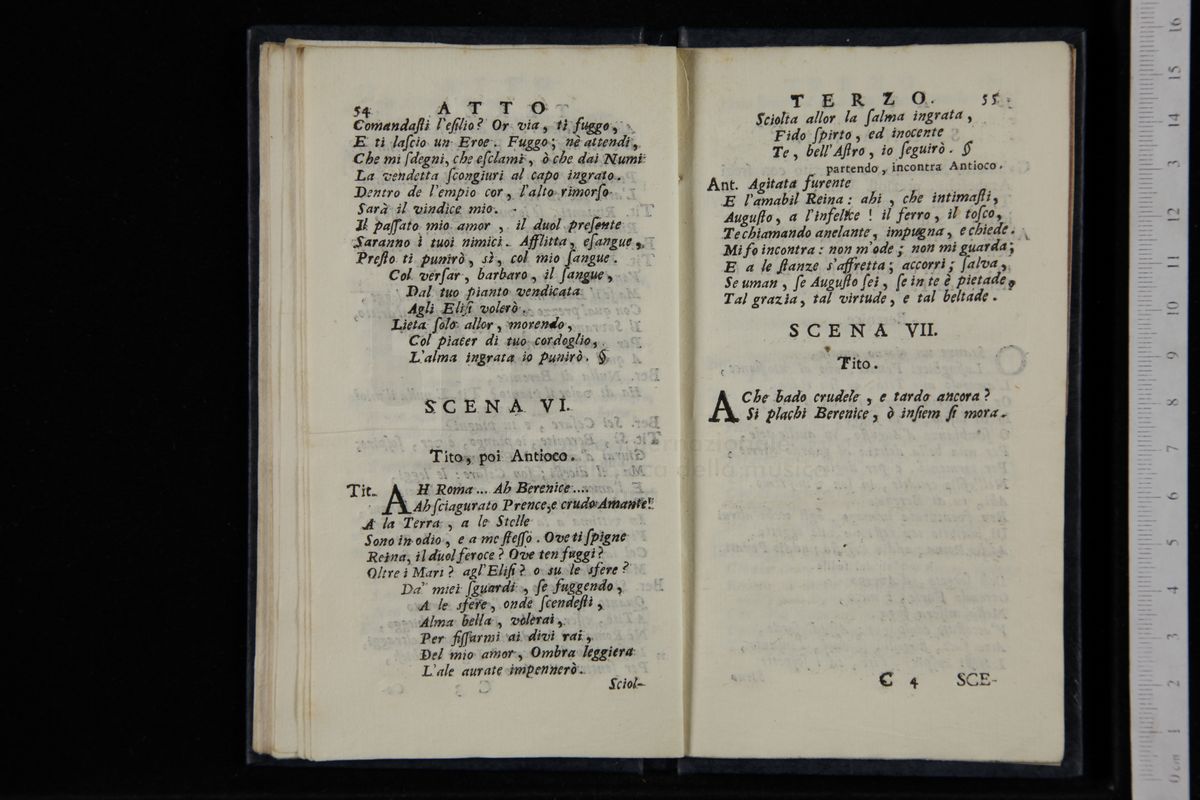 54 ATTO
Comandaſti l'eſilio? Or via, ti fuggo,
E ti laſcio un Eroe. Fuggo; nè attendi,
Che mi ſdegni, che eſclami, ò che dai Numi
La vendetta ſcongiuri al capo ingrato.
Dentro de l'empio cor, l'alto rimorſo
Sarà il vindice mio.
Il paſſato mio amor, il duol preſente
Saranno i tuoi nimici. Afflitta, eſangue,
Preſto ti punirò, sì, col mio ſangue.
Col verſar, barbaro, il ſangue,
Dal tuo pianto vendicata
Agli Eliſi volerò.
Lieta ſolo allor, morendo,
Col piacer di tuo cordoglio,
L'alma ingrata io punirò. §
SCENA VI.
Tito, poi Antioco.
Tit. AH Roma... Ah Berenice....
Ah ſciagurato Prence, e crudo Amante!
A la Terra, a le Stelle
Sono in odio, e a me ſteſſo. Ove ti ſpigne
Reina, il duol feroce? Ove ten fuggi?
Oltre i Mari? agl'Eliſi? o su le sfere?
Da' miei ſguardi, ſe fuggendo,
A le sfere, onde ſcendeſti,
Alma bella, volerai,
Per fiſſarmi ai divi rai,
Del mio amor, Ombra leggiera
L'ale aurate impennerò.
Sciol-
TERZO. 55
Sciolta allor la ſalma ingrata,
Fido ſpirto, ed inocente
Te, bell'Aſtro, io ſeguirò. §
partendo, incontra Antioco.
Ant. Agitata furente
E l'amabil Reina: ahi, che intimaſti,
Auguſto, a l'infelice! il ferro, il toſco,
Te chiamando anelante, impugna, e chiede.
Mi fo incontra: non m'ode; non mi guarda;
E a le ſtanze s'affretta; accorri; ſalva,
Se uman, ſe Auguſto ſei, ſe in te è pietade,
Tal grazia, tal virtude, e tal beltade.
SCENA VII.
Tito.
A Che bado crudele, e tardo ancora?
Si plachi Berenice, ò inſiem ſi mora.
C 4 SCE-